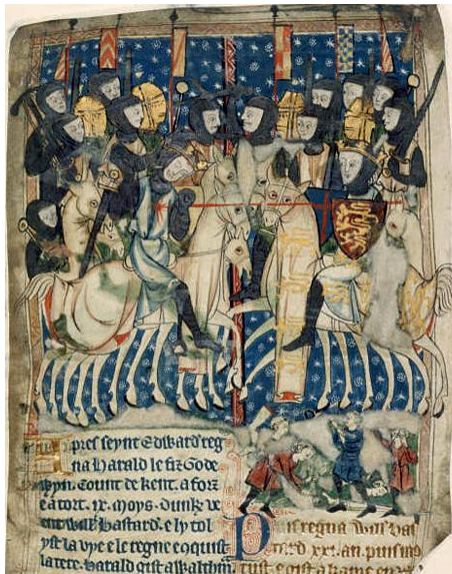 Apres seynt Edward reg
na Harald le fiz Gode
wyn. Count de kent. a forz
e a tort. ix. moys. dunk v
ent Will bastard. e ly tol
yst la vye e le regne e conquist
la terre. Harald gist a Walthm.
Puis regna Will bas
tard. xxi. an. puis mo
rust. e gist a kame en